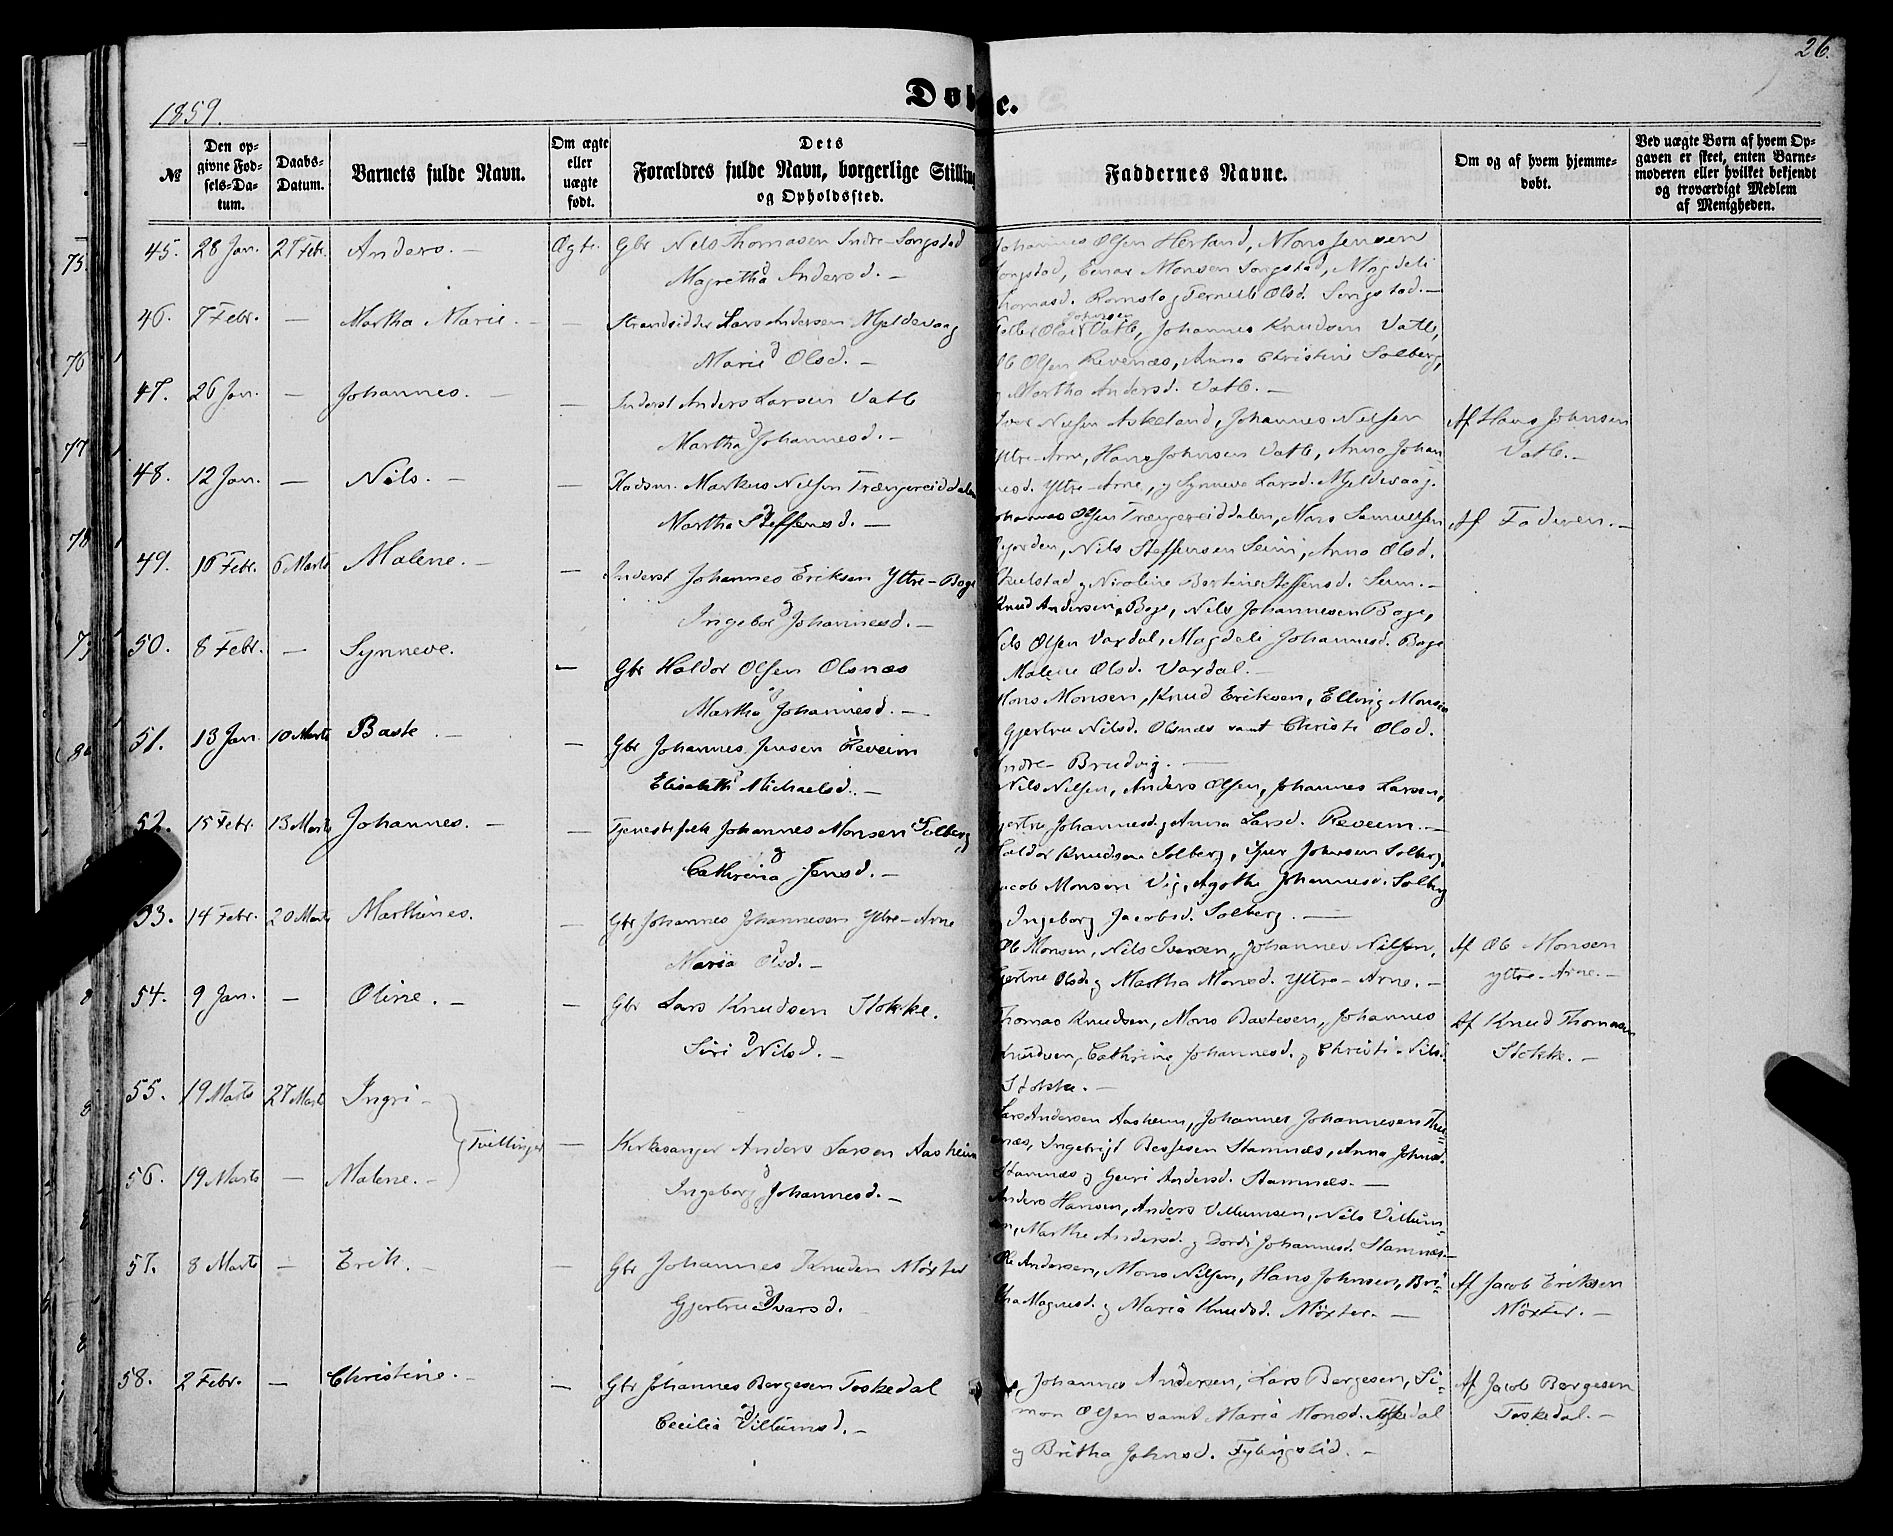 26.
1859.
Døbte.
№
Den op-
givne Fød-
sels-Da-
tum.
Daabs-
Datum.
Barnets fulde Navn.
Om ægte
eller
uægte
født.
Dets
Forældres fulde Navn, borgerlige Stilling
og Opholdssted.
Faddernes Navne.
Om og af hvem hjemme-
døbt.
Ved uægte Børn af hvem Op-
gaven er skeet, enten Barne-
moderen eller hvilket bekjendt
og troværdigt Medlem
af Menigheden.
45. 28 Jan. 27 Febr. Anders. — Ægte. Gbr Nels Thomasen Indre-Songstad
Magretha Andersd. —
Johannes Olsen Herland, Mons Jensen
Songstad, Einar Monsen Songstad, Magdeli
Thomasd. Romslo og Pernill Olsd. Songstad. —
46. 7 Febr. — Martha Marie. — — Strandsidder Lars Andersen Mjeldevaag
Marie Olsd. —
Johnsen Vatle, Johannes Knudsen Vatle,
Ole Olsen Revenæs, Anna Christine Solberg,
Martha Andersd. Vatle. —
47. 26 Jan. — Johannes. — — Inderst Anders Larsen Vatle
Martha Johannesd. —
Iver Nilsen Askeland, Johannes Nilsen
Yttre-Arne, Hans Johnsen Vatle, Anna Johan
nesd. Yttre-Arne, og Synneve Larsd. Mjeldevaag.
Af Hans Johnsen
Vatle. —
48. 12 Jan. — Nils. — — Huusm. Markus Nilsen Trængereiddalen
Martha Steffensd. —
Johannes Olsen Trængereiddalen, Mons Samuelsen
Nils Steffensen Seim, Anna Olsd.
og Nicoline Bertine Steffensd. Seim. —
Af Faderen. —
49. 16 Febr. 6 Marts Malene. — — Inderst Johannes Eriksen Yttre-Boge
Ingebor Johannesd. —
Knud Andersen Boge, Nils Johannesen Boge,
Nils Olsen Vaxdal, Magdeli Johannesd. Boge
Malene Olsd. Vaxdal. —
50. 8 Febr. — Synneve. — Gbr Haldor Olsen Olsnæs
Martha Johannesd. —
Mons Monsen, Knud Eriksen, Elling Monsen
Gjertru Nilsd. Olsnæs samt Christi Olsd.
Indre-Brudvig. —
51. 13 Jan. 10 Marts Baste. — — Gbr Johannes Jensen Reveim
Elisabeth Michaelsd. —
Nils Nilsen, Anders Olsen, Johannes Larsen,
Gjertru Johannesd. og Anna Larsd. Reveim. —
52. 15 Febr. 13 Marts Johannes. — — Tjenestefolk Johannes Monsen Solberg
og
Cathrina Jensd. —
Haldor Knudsen Solberg, Iver Johnsen Solberg,
Jacob Monsen Vig, Agothe Johannesd. Solberg
Ingeborg Jacobsd. Solberg. —
53. 14 Febr. 20 Marts Marthines. — Gbr Johannes Johannesen Yttre-Arne
Maria Olsd. —
Ole Monsen, Nils Iversen, Johannes Nilsen,
Gjertru Olsd. og Martha Monsd. Yttre-Arne. —
Af Ole Monsen
Yttre-Arne. —
54. 9 Jan. — Oline. — — Gbr Lars Knudsen Stokke.
Siri Nilsd. —
Thomas Knudsen, Mons Bastesen, Johannes
Knudsen, Cathrine Johannesd. og Christi Nils.
Stokke. —
Af Knud Thomasen
Stokke. —
55. 19 Marts 27 Marts Ingri —
Tvillinger — Kirkesanger Anders Larsen Aasheim
og
Ingeborg Johannesd. —
Lars Andersen Aasheim, Johannes Johannesen
Ingebrigt Stamnæs, Anna Johnsd.
Stamnæs og Guri Andersd. Stamnæs. —
56. 19 Marts — Malene. —
Anders Hansen, Anders Villumsen, Nils Villum-
en, Marthe Andersd. og Dordi Johannesd. Stamnæs. —
57. 8 Marts — Erik. — — Gbr Johannes Knudsen Møxter
Gjertru Ivarsd.
Ole Andersen, Mons Nilsen, Hans Johnsen, Bri=
tha Magnesd. og Maria Knudsd. Møxter. —
Af Jacob Eriksen
Møxter. —
58. 2 Febr. — Christine. — — Gbr Johannes Børgesen Toskedal
Cecilia Villumsd. —
Johannes Andersen, Lars Børgesen, Si=
mon Olsen samt Maria Monsd. Toskedal
og Britha Johnsd. —
Af Jacob Børgesen
Toskedal. —
75.
76
77
78
79
80